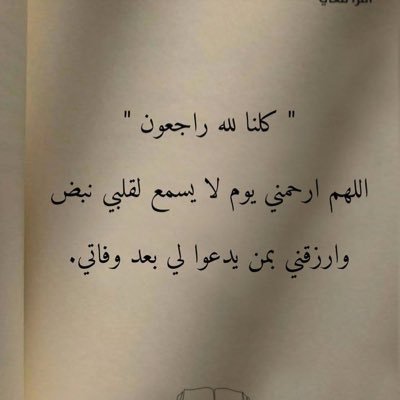 " كلنا لله راجعون "
اللهم ارحمني يوم لا يسمع لقلبي نبض
وارزقني بمن يدعوا لي بعد وفاتي.